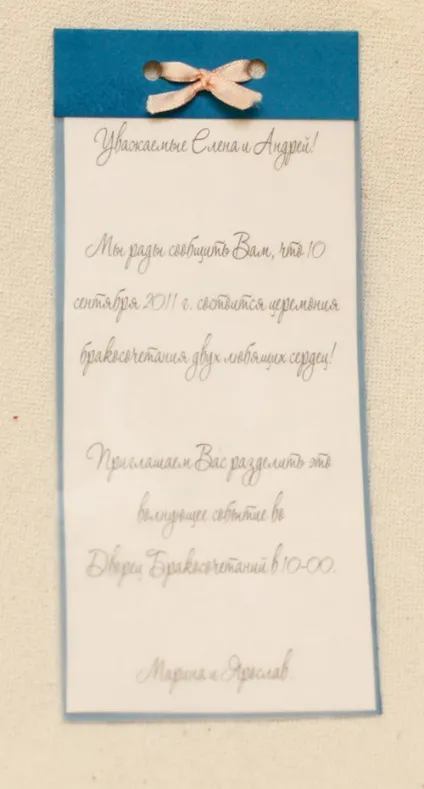 Уважаемые Елена и Андрей!
Мы рады сообщить Вам, что 10
сентября 2011 г. состоится церемония
бракосочетания двух любящих сердец!
Приглашаем Вас разделить это
волнующее событие во
Дворец Бракосочетаний в 10-00.
Марина и Ярослав